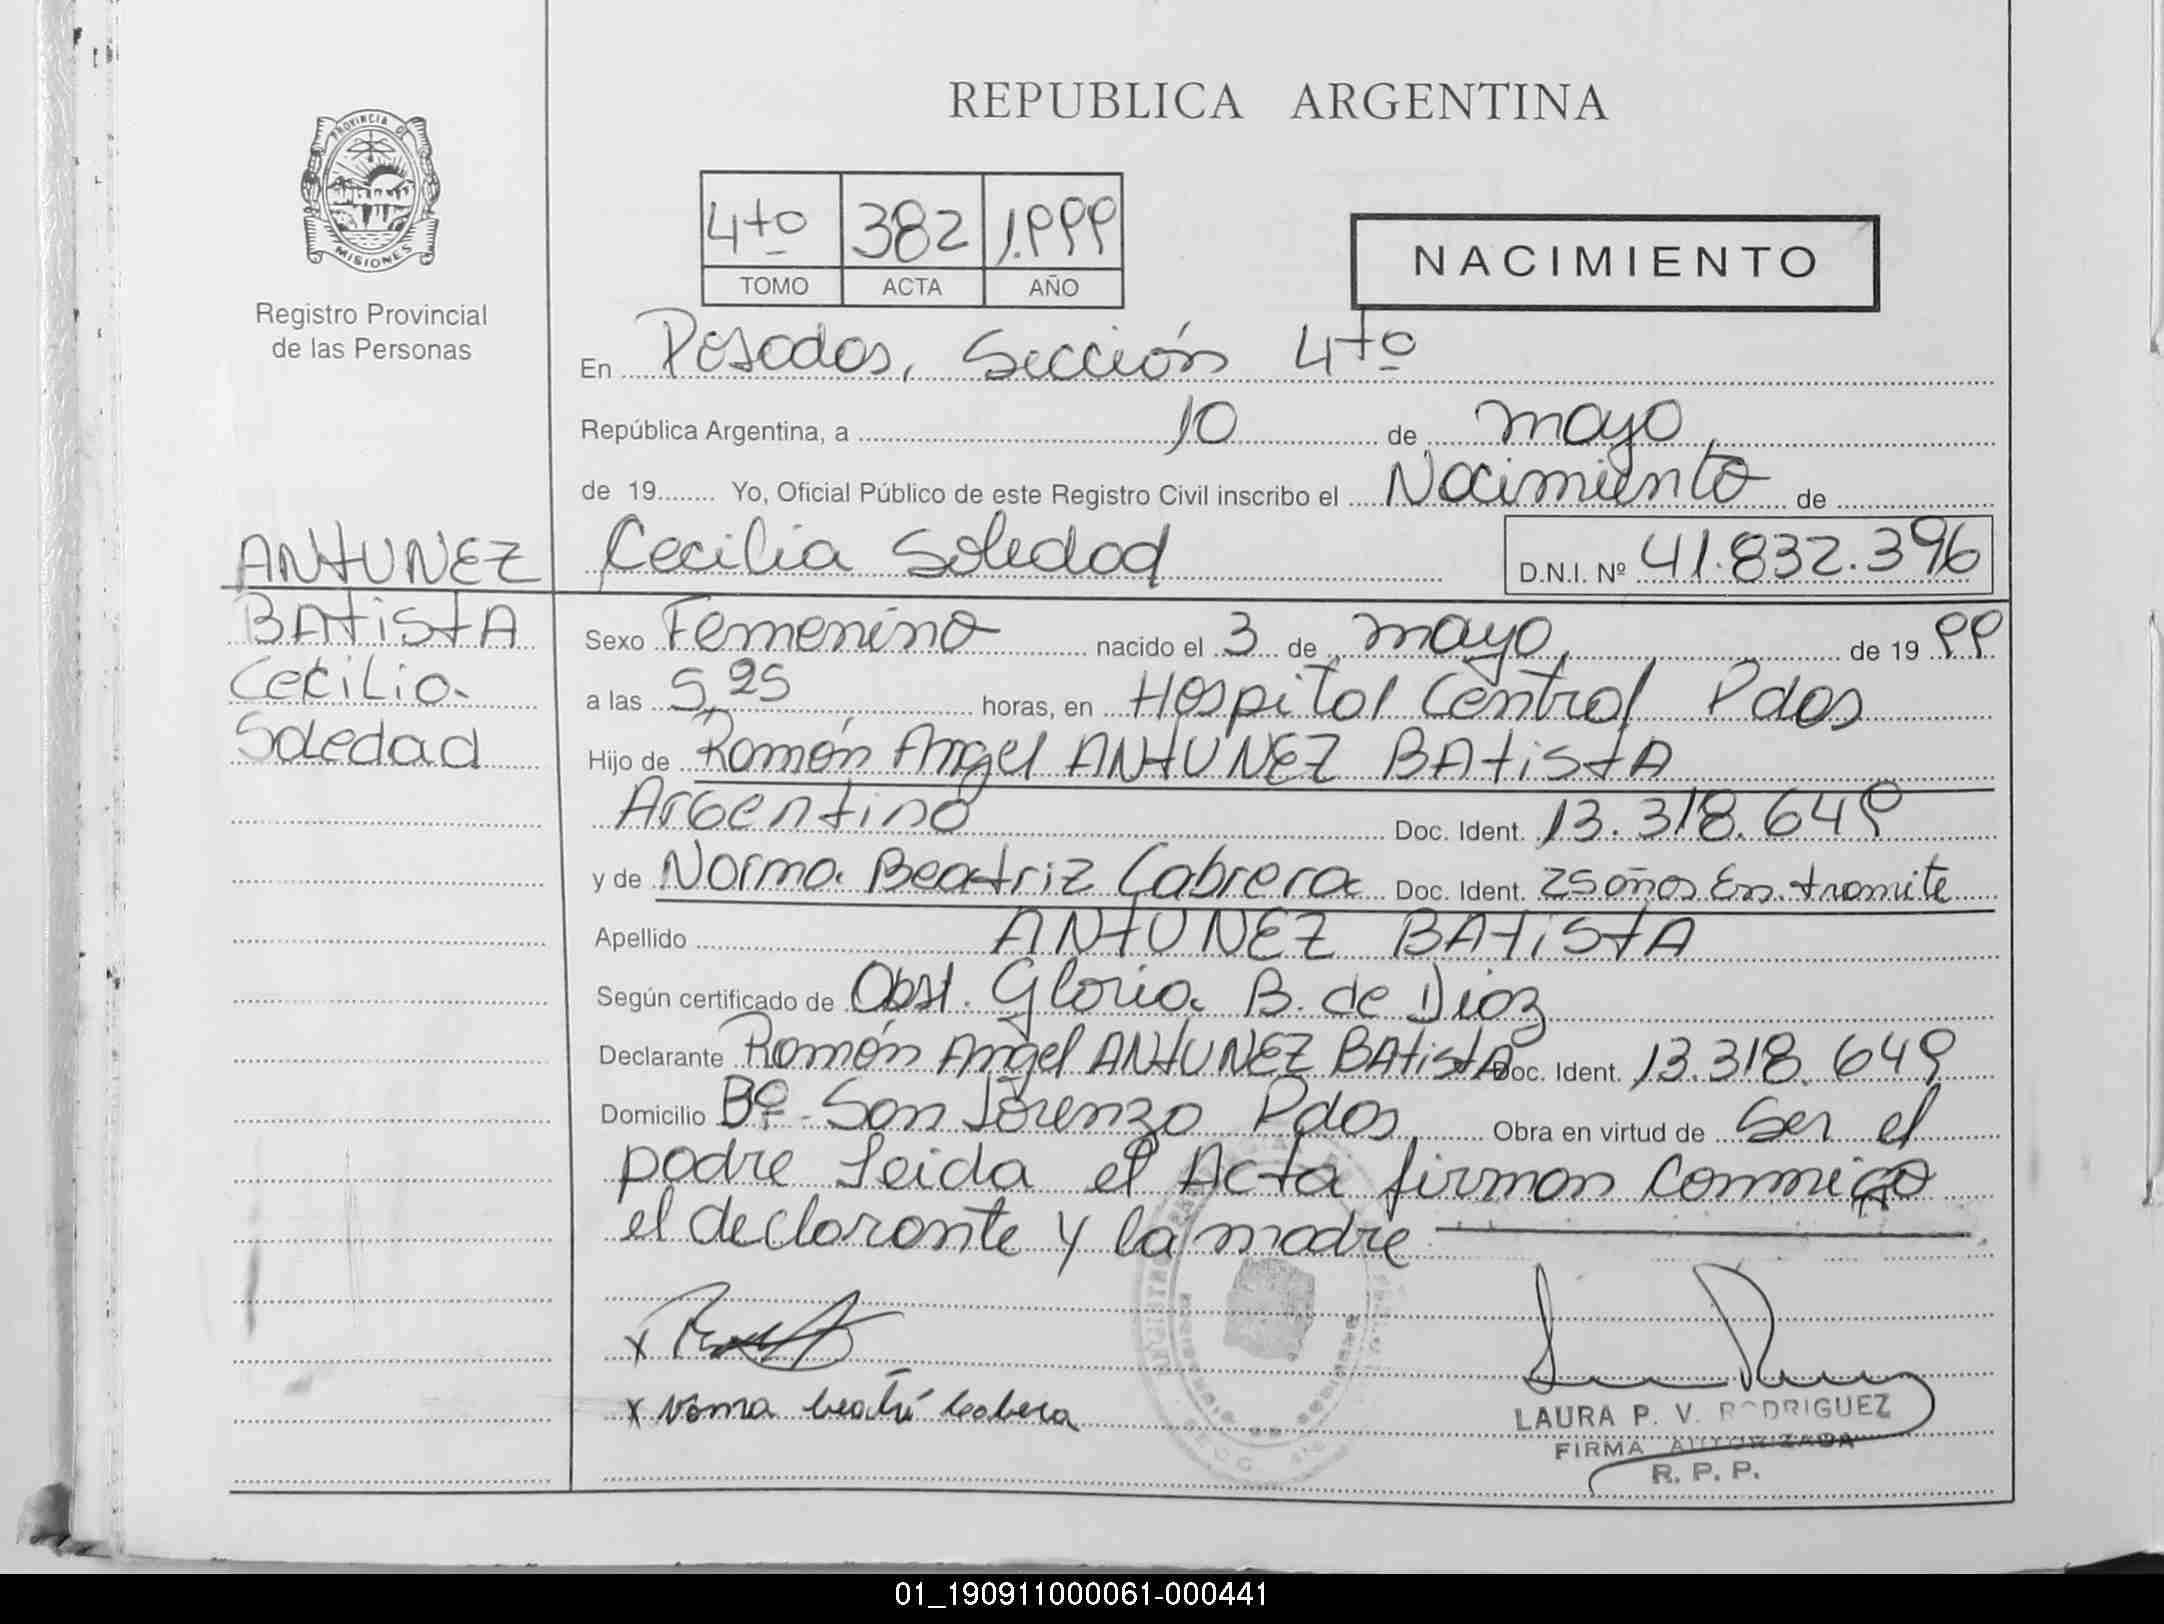 REPUBLICA ARGENTINA
PROVINCIA DE
MISIONES
Registro Provincial
de las Personas
4to 382 1.999
TOMO ACTA AÑO
NACIMIENTO
En Posadas, Sección 4to
República Argentina, a 10 de mayo,
de 19 Yo, Oficial Público de este Registro Civil inscribo el Nacimiento de
ANTUNEZ
BAtistA
Cecilia
Soledad
Cecilia Soledad D.N.I. Nº 41.832.396
Sexo Femenino nacido el 3 de mayo, de 19 99
a las 5,25 horas, en Hospital Central Pdas
Hijo de Ramón Angel ANtUNEZ BAtistA
Argentino Doc. Ident. 13.318.649
y de Norma Beatriz Cabrera Doc. Ident. 25 años En tramite
Apellido ANtUNEZ BAtistA
Según certificado de Obst. Gloria B. de Diaz
Declarante Ramón Angel ANtUNEZ BAtistA Doc. Ident. 13.318.649
Domicilio Bº San Lorenzo Pdas, Obra en virtud de Ser el
padre Leida el Acta firman conmigo
el declarante y la madre
x
x Norma beatri Cabrera
LAURA P. V. RODRIGUEZ
FIRMA AUTORIZADA
R. P. P.
01_190911000061-000441